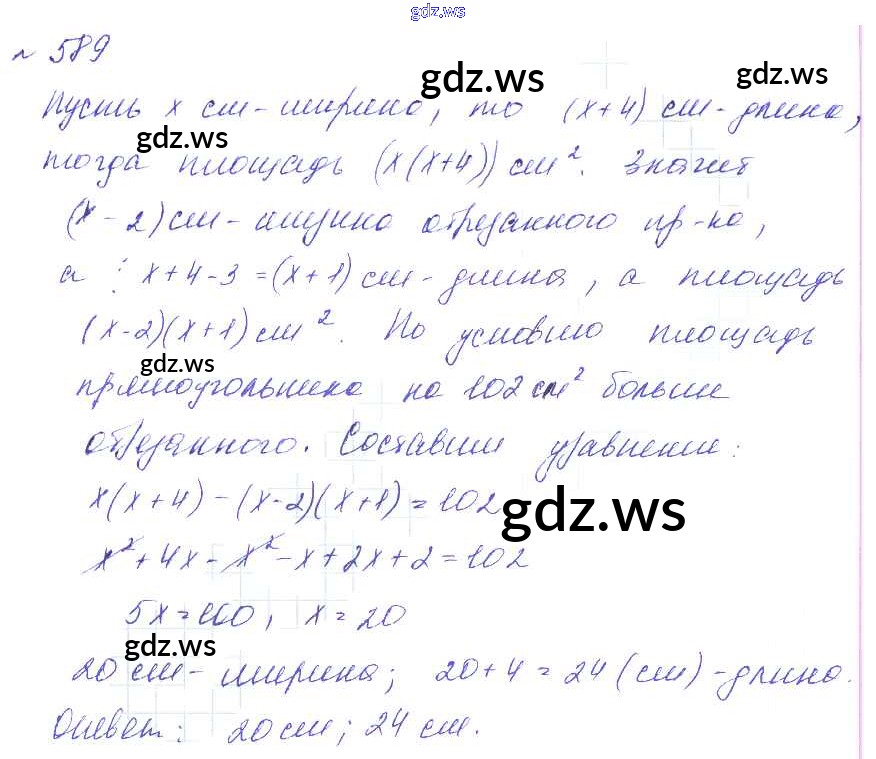 gdz.ws
№ 589
gdz.ws gdz.ws
Пусть x см - ширина, то (x+4) см - длина,
gdz.ws
тогда площадь (x(x+4)) см². Значит
(x-2) см - ширина отрезанного пр-ка,
а x+4-3=(x+1) см - длина, а площадь
(x-2)(x+1) см². По условию площадь
gdz.ws
прямоугольника на 102 см² больше
отрезанного. Составим уравнение:
x(x+4)-(x-2)(x+1)=102
gdz.ws
x²+4x-x²-x+2x+2=102
5x=100, x=20
gdz.ws
20 см - ширина; 20+4=24 (см) - длина.
Ответ: 20 см; 24 см.